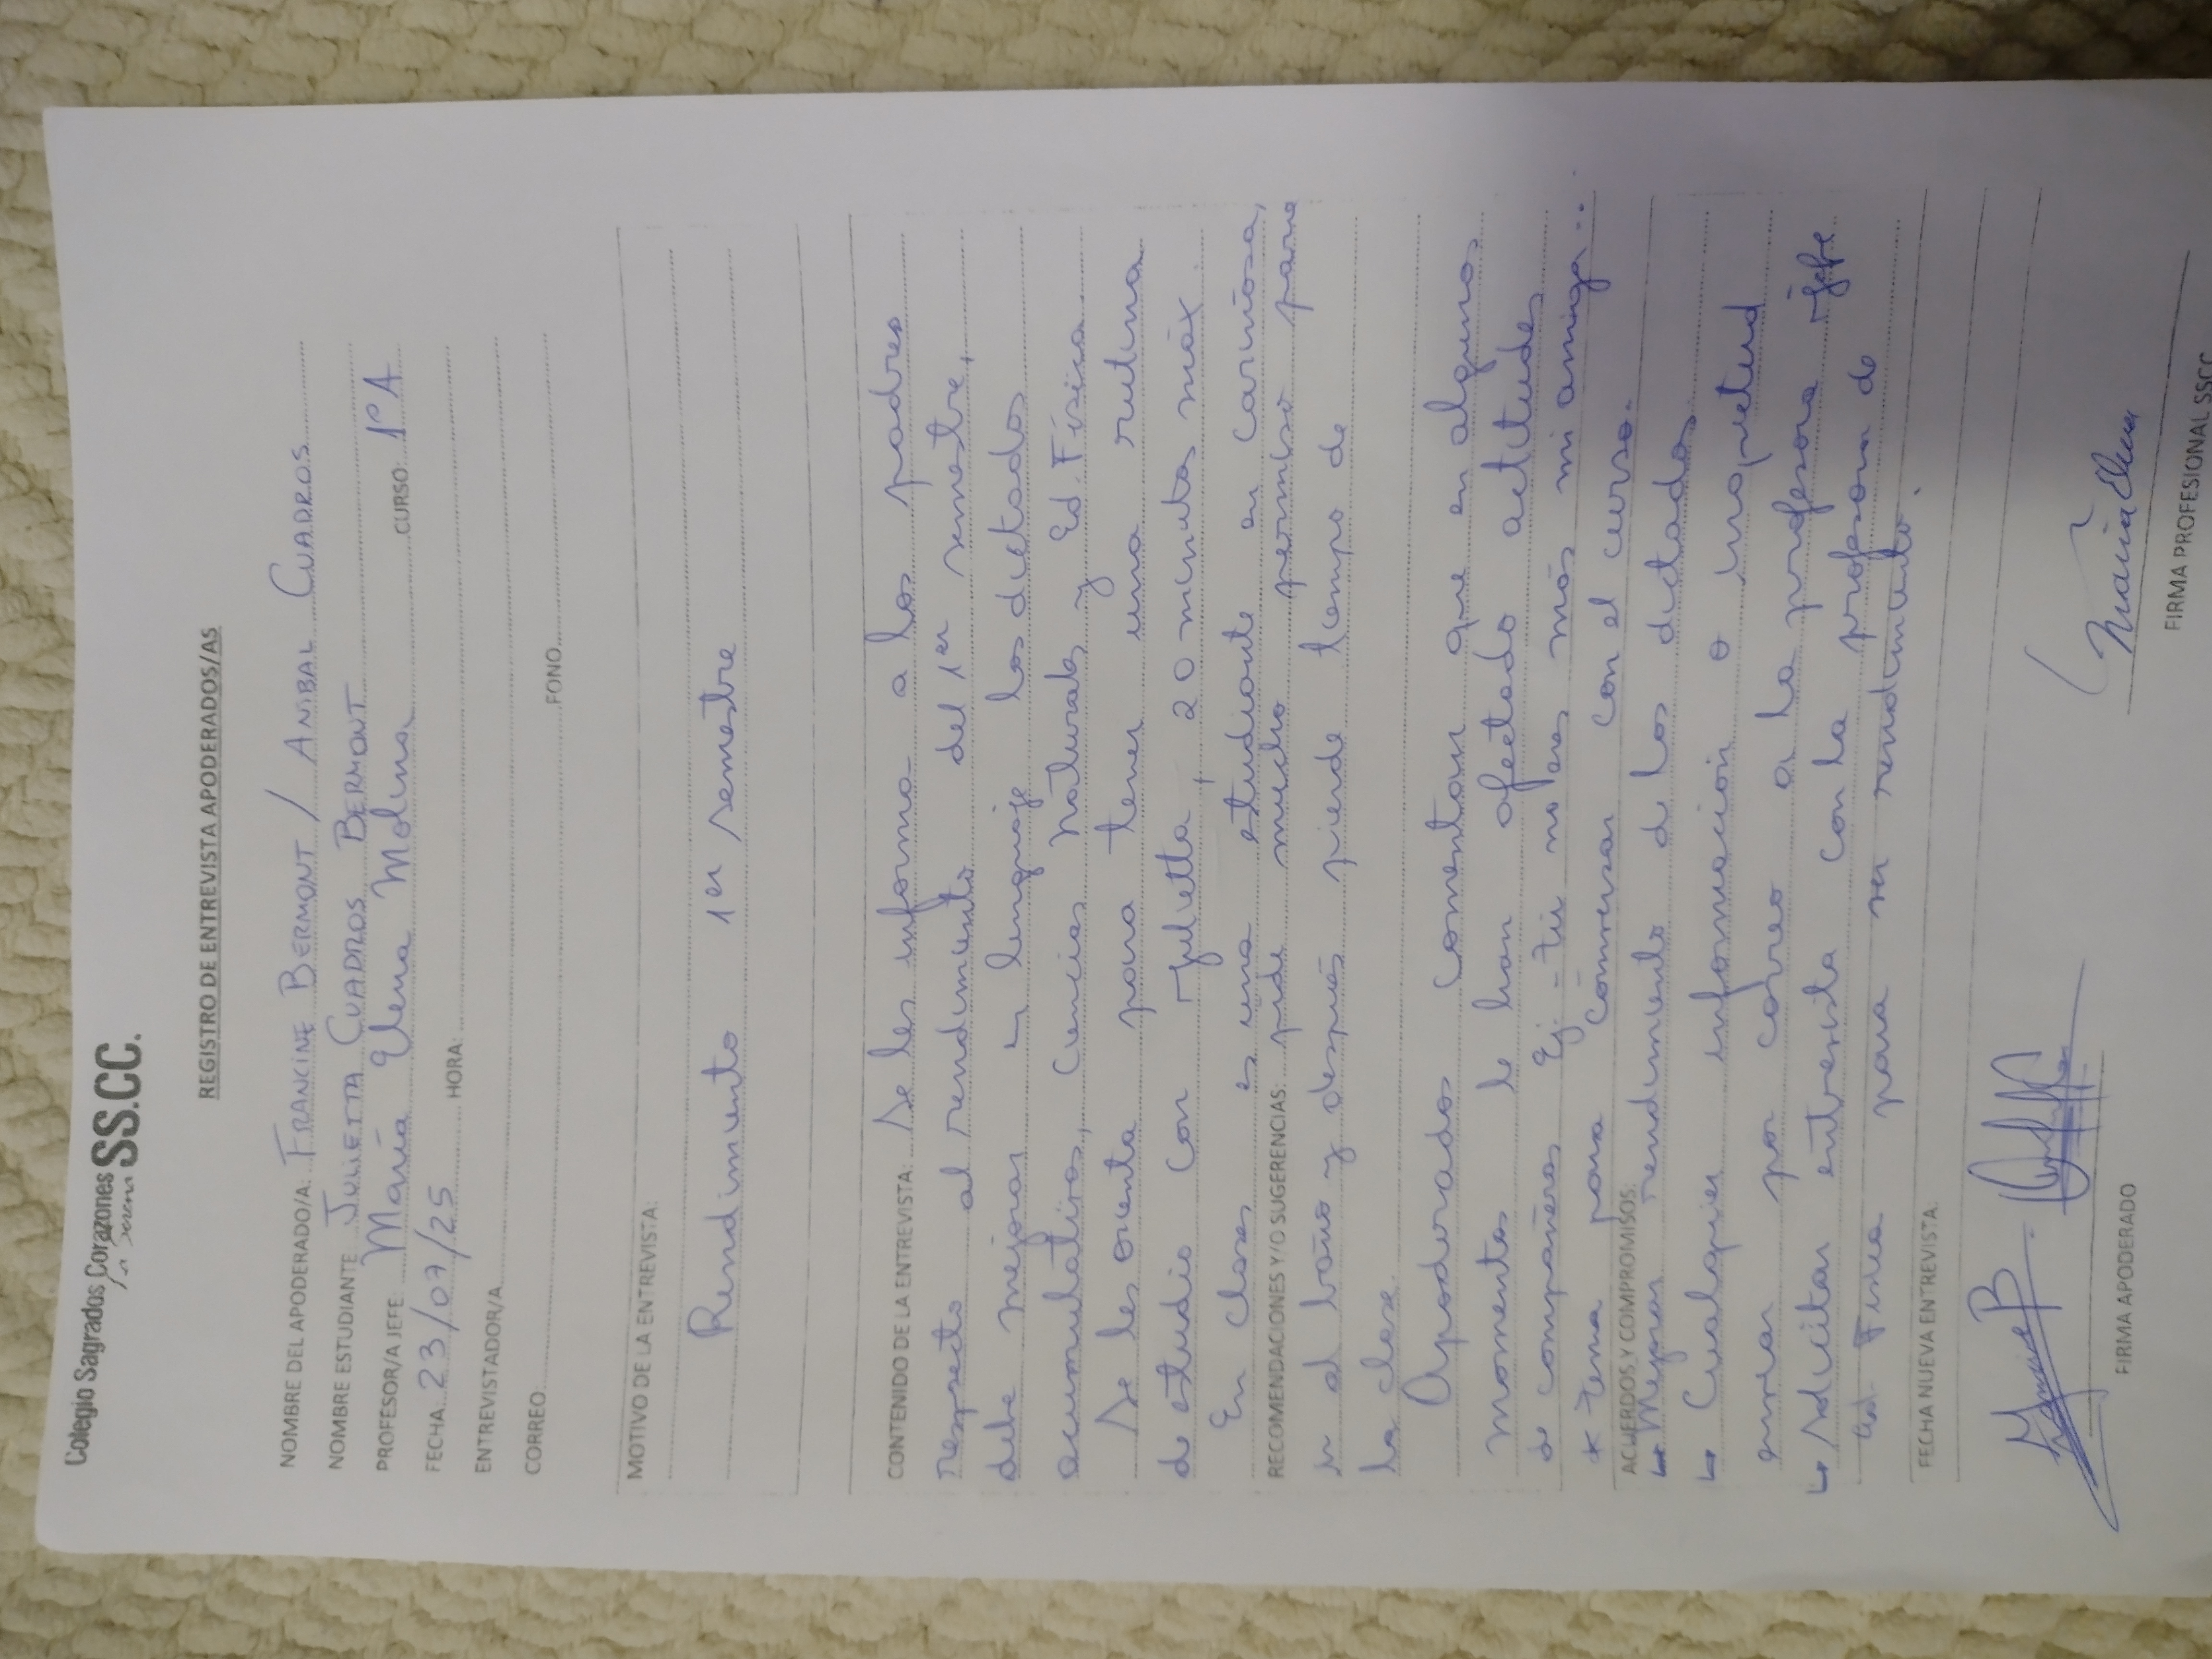 Colegio Sagrados Corazones SS.CC.
La Serena
REGISTRO DE ENTREVISTA APODERADOS/AS
NOMBRE DEL APODERADO/A: FRANCINE BERMONT / ANIBAL CUADROS
NOMBRE ESTUDIANTE JULIETTA CUADROS BERMONT
PROFESOR/A JEFE: María Elena Molina CURSO: 1º A
FECHA: 23/07/25 HORA:
ENTREVISTADOR/A
CORREO FONO
MOTIVO DE LA ENTREVISTA:
Rendimiento 1er semestre
CONTENIDO DE LA ENTREVISTA: Se les informa a los padres
respecto al rendimiento del 1er semestre,
debe mejorar en lenguaje los dictados
acumulativos, Ciencias Naturales y Ed. Física.
Se les orienta para tener una rutina
de estudio con Julietta, 20 minutos máx.
En clases es una estudiante es cariñosa,
RECOMENDACIONES Y/O SUGERENCIAS: pide mucho permiso para
ir al baño y después pierde tiempo de
la clase.
Apoderados comentan que en algunos
momentos le han afectado actitudes
de compañeros Ej. - tú no eres más mi amiga...
* Tema para conversar con el curso.
ACUERDOS Y COMPROMISOS:
↳ Mejorar rendimiento de los dictados
↳ Cualquier información o inquietud
enviar por correo a la profesora jefe
↳ Solicitar entrevista con la profesora de
Ed. Física para su rendimiento.
FECHA NUEVA ENTREVISTA:
FIRMA APODERADO
FIRMA PROFESIONAL SSCC